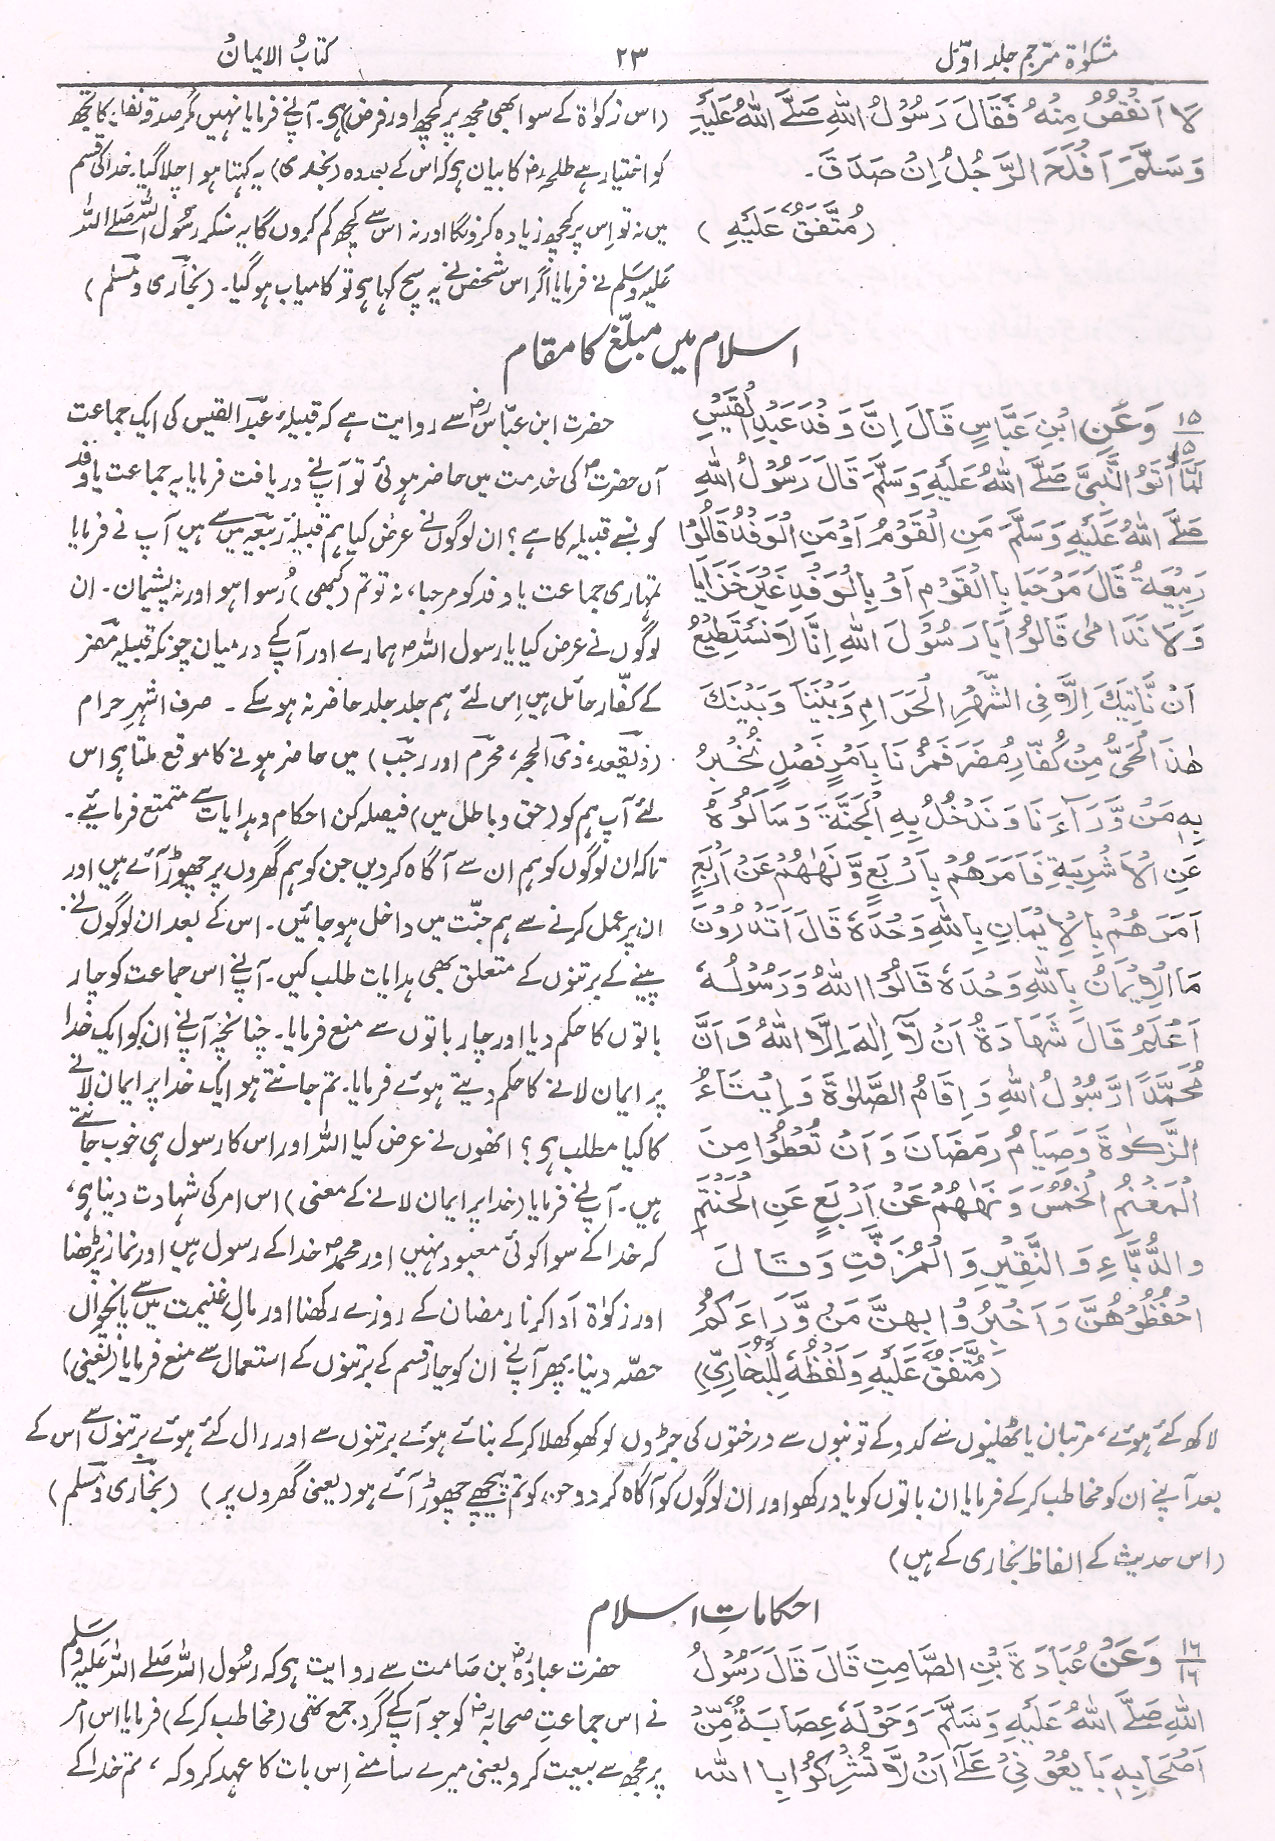 مشکوٰۃ مترجم جلد اوّل
۲۳
کتابُ الایمانُ
لَا اَنْقُصُ مِنْهُ فَقَالَ رَسُوْلُ اللهِ صَلَّے اللهُ عَلَیْهِ
وَسَلَّمَ اَفْلَحَ الرَّجُلُ اِنْ صَدَقَ۔
(مُتَّفَقٌ عَلَیْهِ)
(اس زکوٰۃ کے سوا بھی مجھ پر کچھ اور فرض) ہی۔ آپنے فرمایا نہیں مگر صدقۂ نفل کا تجھ
کو اختیار ہے طلحہؓ کا بیان ہی کہ اس کے بعد وہ (نجدی) یہ کہتا ہوا چلا گیا۔ خدا کی قسم
میں نہ تو اِس پر کچھ زیادہ کرونگا اور نہ اس سے کچھ کم کروں گا یہ سنکر رسُول اللہ صلے اللہ
علیہ وسَلم نے فرمایا اگر اس شخص نے یہ سچ کہا ہی تو کامیاب ہوگیا۔ (بخاری ومسلم)
اسلام میں مبلّغ کا مقام
۱۵
۱۵
وَعَنِ ابْنِ عَبَّاسٍ قَالَ اِنَّ وَفْدَ عَبْدِ الْقَیْسِ
لَمَّا اَتَوُ النَّبِیَّ صَلَّے اللهُ عَلَیْهِ وَسَلَّمَ قَالَ رَسُوْلُ اللهِ
صَلَّے اللهُ عَلَیْهِ وَسَلَّمَ مَنِ الْقَوْمُ اَوْ مَنِ الْوَفْدُ قَالُوْا
رَبِیْعَةُ قَالَ مَرْحَبًا بِالْقَوْمِ اَوْ بِالْوَفْدِ غَیْرَ خَزَایَا
وَلَا نَدَامٰی قَالُوْا یَا رَسُوْلَ اللهِ اِنَّا لَا نَسْتَطِیْعُ
اَنْ نَّاتِیَكَ اِلَّا فِی الشَّهْرِ الْحَرَامِ وَبَیْنَنَا وَبَیْنَكَ
هٰذَا الْحَیُّ مِنْ كُفَّارِ مُضَرَ فَمُرْنَا بِاَمْرٍ فَصْلٍ نُخْبِرُ
بِهٖ مَنْ وَّرَآءَنَا وَنَدْخُلُ بِهِ الْجَنَّةَ وَسَاَلُوْهُ
عَنِ الْاَشْرِبَةِ فَاَمَرَهُمْ بِاَرْبَعٍ وَّنَهٰهُمْ عَنْ اَرْبَعٍ
اَمَرَهُمْ بِالْاِیْمَانِ بِاللهِ وَحْدَهٗ قَالَ اَتَدْرُوْنَ
مَا الْاِیْمَانُ بِاللهِ وَحْدَهٗ قَالُوْا اللهُ وَرَسُوْلُهٗ
اَعْلَمُ قَالَ شَهَادَةُ اَنْ لَّآ اِلٰهَ اِلَّا اللهُ وَاَنَّ
مُحَمَّدًا رَّسُوْلُ اللهِ وَاِقَامُ الصَّلٰوةِ وَاِیْتَاءُ
الزَّكٰوةِ وَصِیَامُ رَمَضَانَ وَاَنْ تُعْطُوْا مِنَ
الْمَغْنَمِ الْخُمُسَ وَنَهٰهُمْ عَنْ اَرْبَعٍ عَنِ الْحَنْتَمِ
وَالدُّبَّاءِ وَالنَّقِیْرِ وَالْمُزَفَّتِ وَقَالَ
احْفَظُوْهُنَّ وَاَخْبِرُوْا بِهِنَّ مَنْ وَّرَاءَكُمْ
(مُتَّفَقٌ عَلَیْهِ وَلَفْظُهٗ لِلْبُخَارِیِّ)
حضرت ابن عبّاسؓ سے روایت ہے کہ قبیلۂ عبد القیس کی ایک جماعت
آں حضرتؐ کی خدمت میں حاضر ہوئی تو آپنے دریافت فرمایا یہ جماعت یا وفد
کونسے قبیلہ کا ہے؟ ان لوگوں نے عرض کیا ہم قبیلۂ ربیعہ میں سے ہیں آپ نے فرمایا
تمہاری جماعت یا وفد کو مرحبا، نہ تو تم (کبھی) رُسوا ہو اور نہ پشیمان۔ ان
لوگوں نے عرض کیا یا رسول اللہؐ ہمارے اور آپ کے درمیان چونکہ قبیلہ مضر
کے کفّار حائل ہیں اِس لئے ہم جلد جلد حاضر نہ ہوسکے۔ صرف اشہرِ حرام
(ذیقعد، ذی الحجہ، محرّم اور رجب) میں حاضر ہونے کا موقع ملتا ہی اس
لئے آپ ہم کو (حق و باطل میں) فیصلہ کن احکام و ہدایات سے متمتع فرمائیے۔
تاکہ ان لوگوں کو ہم ان سے آگاہ کردیں جن کو ہم گھروں پر چھوڑ آئے ہیں اور
ان پر عمل کرنے سے ہم جنّت میں داخل ہوجائیں۔ اس کے بعد ان لوگوں نے
پینے کے برتنوں کے متعلق بھی ہدایات طلب کیں۔ آپنے اس جماعت کو چار
باتوں کا حکم دیا اور چار باتوں سے منع فرمایا۔ چنانچہ آپنے ان کو ایک خدا
پر ایمان لانے کا حکم دیتے ہوئے فرمایا۔ تم جانتے ہو ایک خدا پر ایمان لانے
کا کیا مطلب ہی؟ انھوں نے عرض کیا اللہ اور اس کا رسول ہی خوب جانتے
ہیں۔ آپنے فرمایا (خدا پر ایمان لانے کے معنی) اس امر کی شہادت دینا ہی،
کہ خدا کے سوا کوئی معبود نہیں اور محمدؐ خدا کے رسول ہیں اور نماز پڑھنا
اور زکوٰۃ ادا کرنا رمضان کے روزے رکھنا اور مالِ غنیمت میں سے پانچواں
حصّہ دینا، پھر آپنے ان کو چار قسم کے برتنوں کے استعمال سے منع فرمایا (یعنی)
لاکھ کئے ہوئے، مرتبان یا ٹھلیوں سے کدو کے تونبوں سے درختوں کی جڑوں کو کھوکھلا کرکے بنائے ہوئے برتنوں سے اور رال کئے ہوئے برتنوں سے اس کے
بعد آپنے ان کو مخاطب کرکے فرمایا ان باتوں کو یاد رکھو اور ان لوگوں کو آگاہ کردو جن کو تم پیچھے چھوڑ آئے ہو (یعنی گھروں پر) (بخاری ومسلم)
(اس حدیث کے الفاظ بخاری کے ہیں)
احکاماتِ اسلام
۱۶
۱۶
وَعَنْ عُبَادَةَ بْنِ الصَّامِتِ قَالَ قَالَ رَسُوْلُ
اللهِ صَلَّے اللهُ عَلَیْهِ وَسَلَّمَ وَحَوْلَهٗ عِصَابَةٌ مِّنْ
اَصْحَابِهٖ بَایِعُوْنِیْ عَلٰٓے اَنْ لَّا تُشْرِكُوْا بِاللهِ
حضرت عبادہؓ بن صامت سے روایت ہی کہ رسُول اللہ صَلے اللہ علیہ وسلم
نے اس جماعتِ صحابہؓ کو جو آپ کے گرد جمع تھی (مخاطب کرکے) فرمایا اس امر
پر مجھ سے بیعت کرو یعنی میرے سامنے اِس بات کا عہد کرو کہ، تم خدا کے